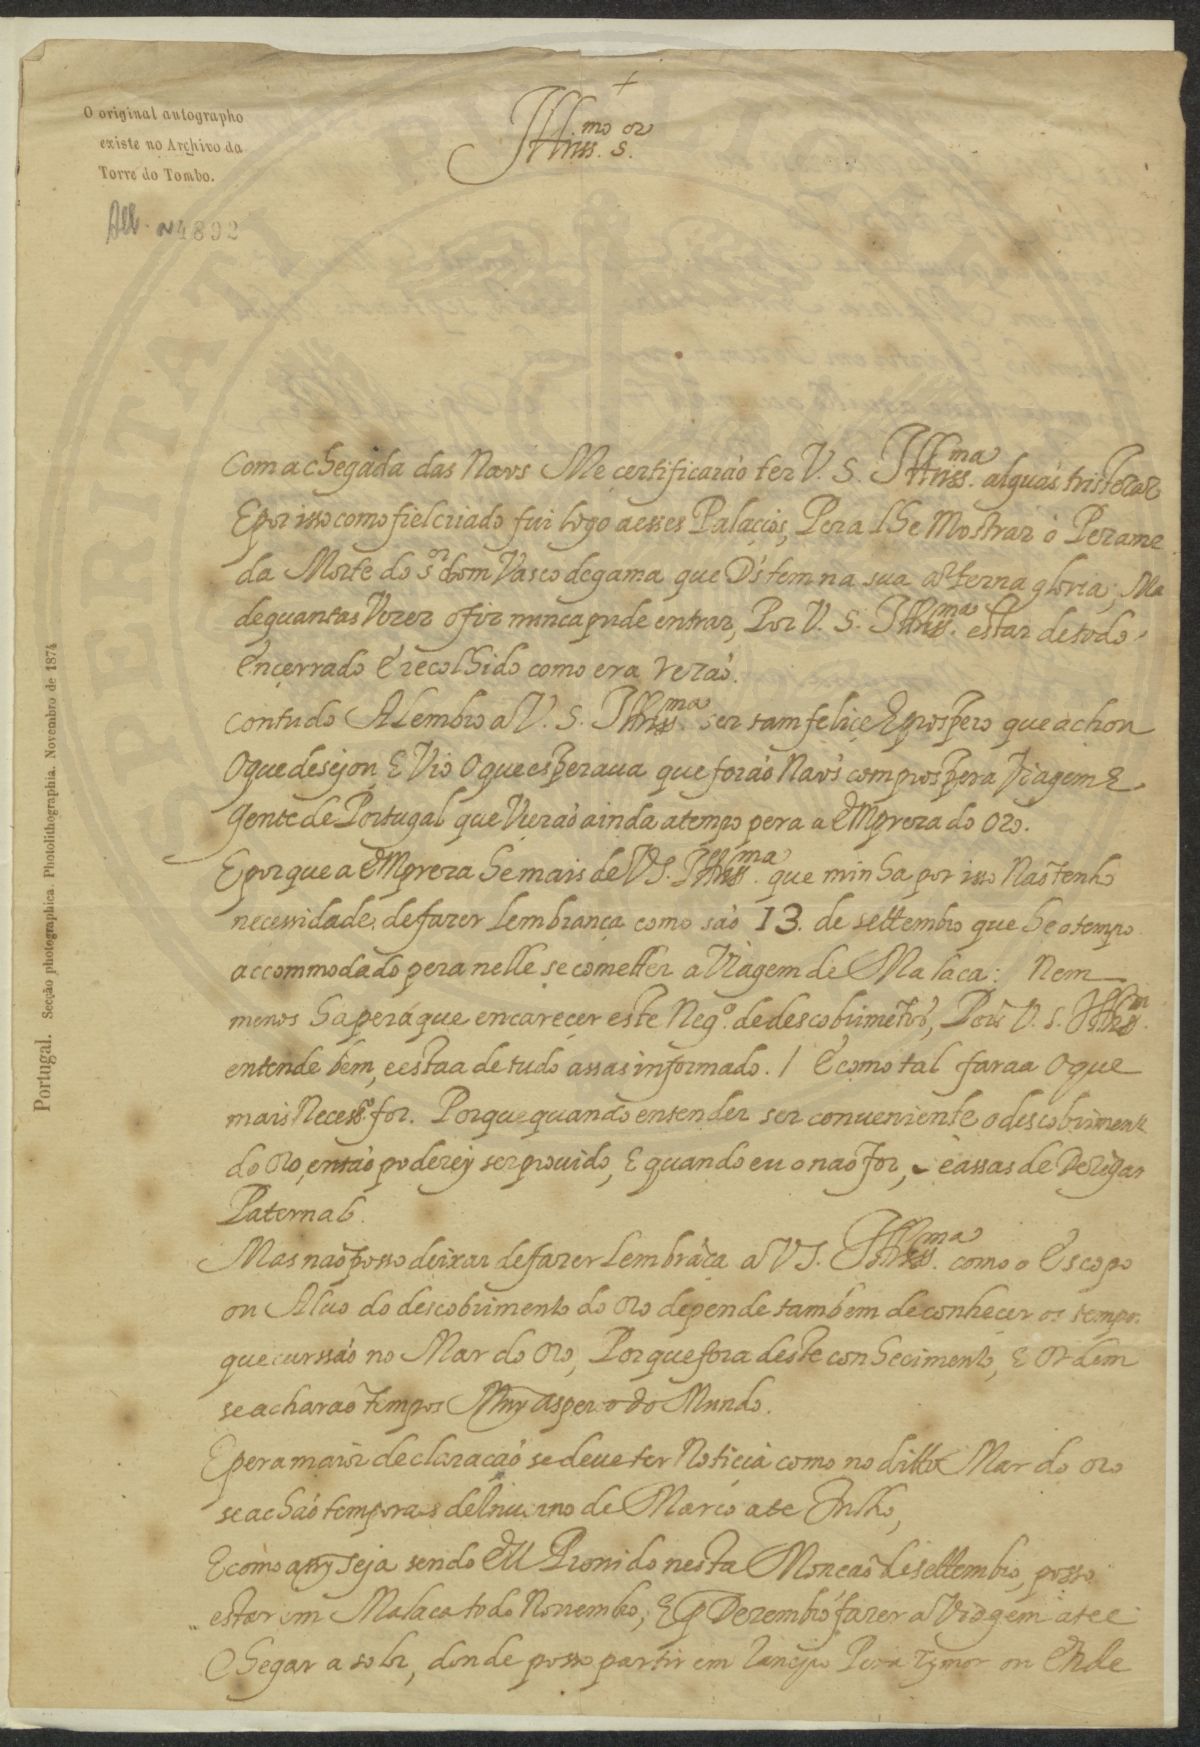 O original autographo
existe no Archivo da
Torre do Tombo.
4892
+
Illriss.mo S.or
Com a chegada das Naos Me certificaráo ter V. S. Illriss.ma alguás tristezas
E por isso como fiel criado fui logo a esses Palaçios, Pera lhe Mostrar o Pezame
da Morte do S.or dom Vasco de gama que D's tem na sua æterna gloria; Ma
de quantas Vezes o fiz nunca pude entrar, Por V. S. Illriss.ma estar de todo
Ençerrado E recolhido como era rezaó.
Contudo ALembro a V. S. Illriss.ma ser tam felice E prospero que achou
O que desejou E Vio O que esperaua que foraó Naos com prospera Viagem E
Gente de Portugal que Vieraó ainda a tempo pera a EMpreza do Oro.
E porque a EMpreza he mais de V S. Illriss.ma que minha por isso Naó tenho
necessidade de fazer lembrança como saó 13. de settembro que he o tempo
accommodado pera nelle se cometter a Viagem de Malaca: Nem
menos ha pera que encareçer este Neg.º de descobrimẽto, Pois V. S. Illriss.ma
entende bem, e estaa de tudo assas informado. / E como tal faraa O que
mais Necess.º for. Porque quando entender ser conueniente o descobriment
do Oro, entaó poderey ser prouido, E quando eu o naó for, e assas de Perigar
Paternas.
Mas naó posso deixar de fazer lembrãça a V S. Illriss.ma como o Escopo
ou Aluo do descobrimento do Oro depende tambem de conhecer os tempos
que curssaó no Mar do Oro, Porque fora deste conhecimento, E Ordem
se acharaó tempos Muy asperos do Mundo.
E pera maior declaraçaó se deue ter Noticia como no ditto Mar do Oro
se achaó temporaes de Inuerno de Março ate Julho,
E como assy seja sendo EU Prouido nesta Monçaó de settembro, posso
estar em Malaca todo Nouembro, E em Dezembro fazer a Viagem atee
Chegar a solor, donde posso partir em Janeyro Pera Tymor ou Ende
Portugal. Secção photographica. Photolithographia. Novembro de 1874
PERITATI PUBLIC